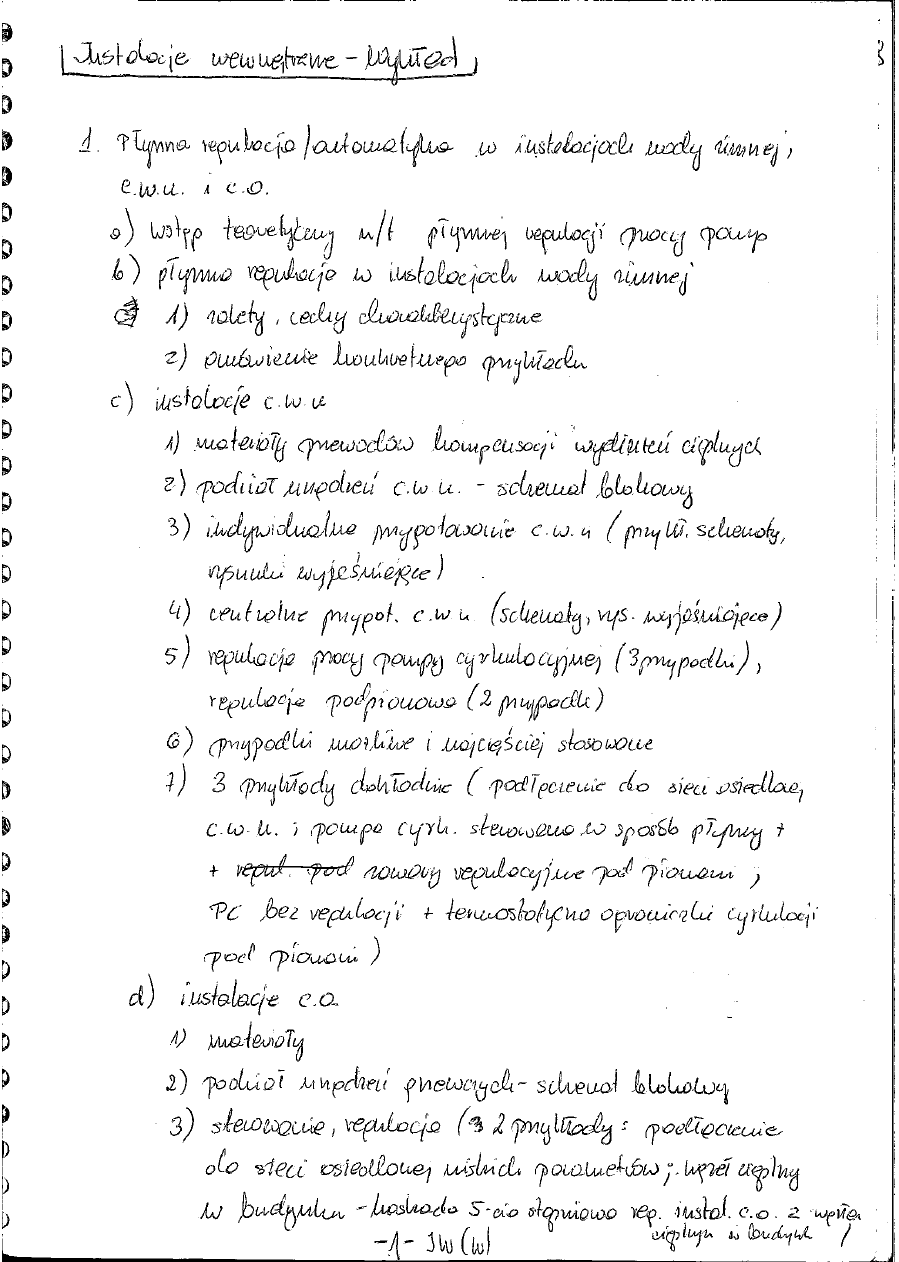 Instalacje wewnętrzne - Wykład
3
1. Płynna regulacja/automatyka w instalacjach wody zimnej,
c.w.u. i c.o.
a) Wstęp teoretyczny n/t płynnej regulacji pracy pomp
b) płynna regulacja w instalacjach wody zimnej
1) zalety, cechy charakterystyczne
2) omówienie konkretnego przykładu
c) instalacje c.w.u
1) materiały przewodów kompensacji wydłużeń cieplnych
2) podział urządzeń c.w.u. - schemat blokowy
3) indywidualne przygotowanie c.w.u (przykł. schematy,
rysunki wyjaśniające)
4) centralne przygot. c.w.u. (schematy, rys. wyjaśniające)
5) regulacja pracy pompy cyrkulacyjnej (3 przypadki),
regulacja podpionowa (2 przypadki)
6) przypadki możliwe i najczęściej stosowane
7) 3 przykłady dokładnie (podłączenie do sieci osiedlowej
c.w.u. i pompa cyrk. sterowana w sposób płynny +
+ regul. pod zawory regulacyjne pod pionami ,
PC bez regulacji + termostatyczne ograniczniki cyrkulacji
pod pionami)
d) instalacje c.o.
1) materiały
2) podział urządzeń grzewczych - schemat blokowy
3) sterowanie, regulacja (2 przykłady: podłączenie
do sieci osiedlowej niskich parametrów; węzeł cieplny
w budynku - kaskada 5-cio stopniowa reg. instal. c.o. z węzłem
cieplnym w budynk )
-1- IW (W)